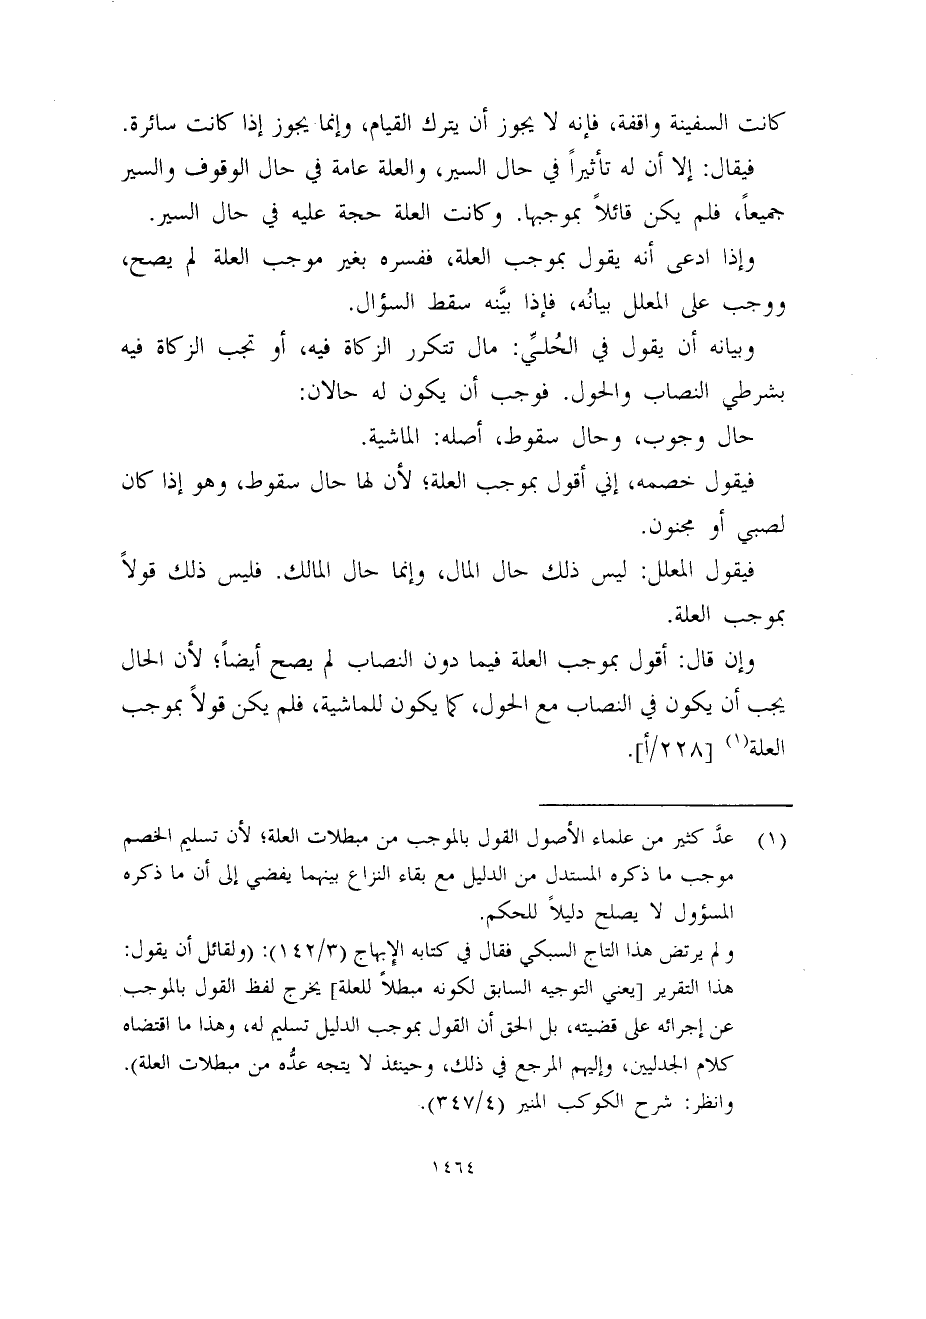 كانت السفينة واقفة، فإنه لا يجوز أن يترك القيام، وإنما يجوز إذا كانت سائرة.
فيقال: إلا أن له تأثيراً في حال السير، والعلة عامة في حال الوقوف والسير
جميعاً، فلم يكن قائلاً بموجبها. وكانت العلة حجة عليه في حال السير.
وإذا ادعى أنه يقول بموجب العلة، ففسره بغير موجب العلة لم يصح،
ووجب على المعلل بيانُه، فإذا بيَّنه سقط السؤال.
وبيانه أن يقول في الحُليِّ: مال تتكرر الزكاة فيه، أو تجب الزكاة فيه
بشرطي النصاب والحول. فوجب أن يكون له حالان:
حال وجوب، وحال سقوط، أصله: الماشية.
فيقول خصمه، إني أقول بموجب العلة؛ لأن لها حال سقوط، وهو إذا كان
لصبي أو مجنون.
فيقول المعلل: ليس ذلك حال المال، وإنما حال المالك. فليس ذلك قولاً
بموجب العلة.
وإن قال: أقول بموجب العلة فيما دون النصاب لم يصح أيضاً؛ لأن الحال
يجب أن يكون في النصاب مع الحول، كما يكون للماشية، فلم يكن قولاً بموجب
العلة(١) [٢٢٨/أ].
(١) عدَّ كثير من علماء الأصول القول بالموجب من مبطلات العلة؛ لأن تسليم الخصم
موجب ما ذكره المستدل من الدليل مع بقاء النزاع بينهما يفضي إلى أن ما ذكره
المسؤول لا يصلح دليلاً للحكم.
ولم يرتض هذا التاج السبكي فقال في كتابه الإبهاج (١٤٢/٣): (ولقائل أن يقول:
هذا التقرير [يعني التوجيه السابق لكونه مبطلاً للعلة] يخرج لفظ القول بالموجب
عن إجرائه على قضيته، بل الحق أن القول بموجب الدليل تسليم له، وهذا ما اقتضاه
كلام الجدليين، وإليهم المرجع في ذلك، وحينئذ لا يتجه عدُّه من مبطلات العلة).
وانظر: شرح الكوكب المنير (٣٤٧/٤).
١٤٦٤